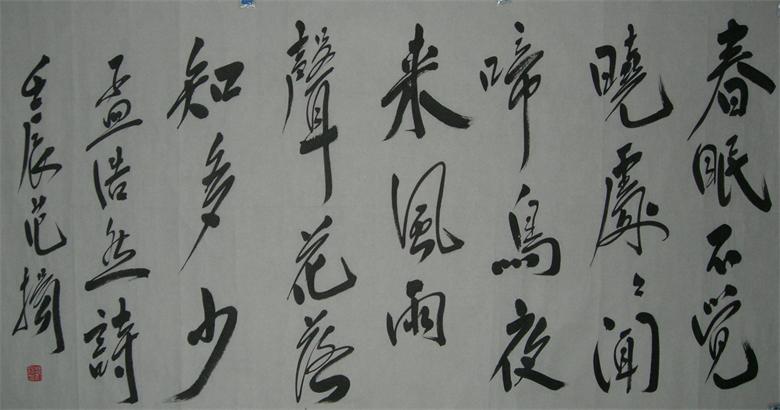 春眠不覺
曉處〻聞
啼鳥夜
来風雨
聲花落
知多少
孟浩然詩
壬辰范